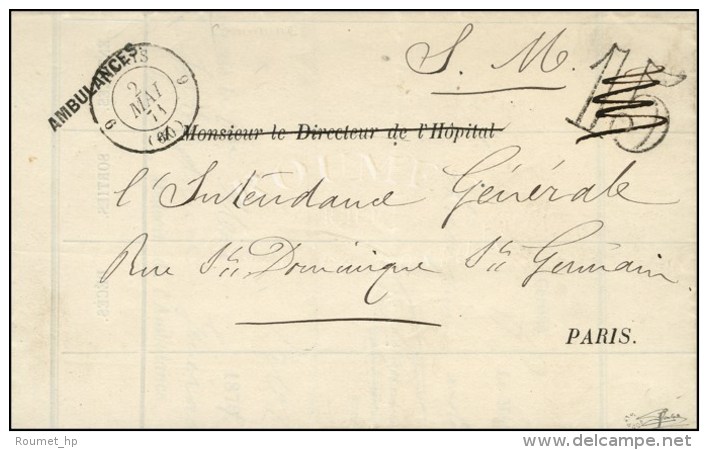 AMBULANCES
2
MAI
71
(60)
S. M.
15
Monsieur le Directeur de l'Hôpital
l'Intendance Générale
Rue St. Dominique St. Germain.
PARIS.
SORTIES.
Roumet_hp
delcampe.net